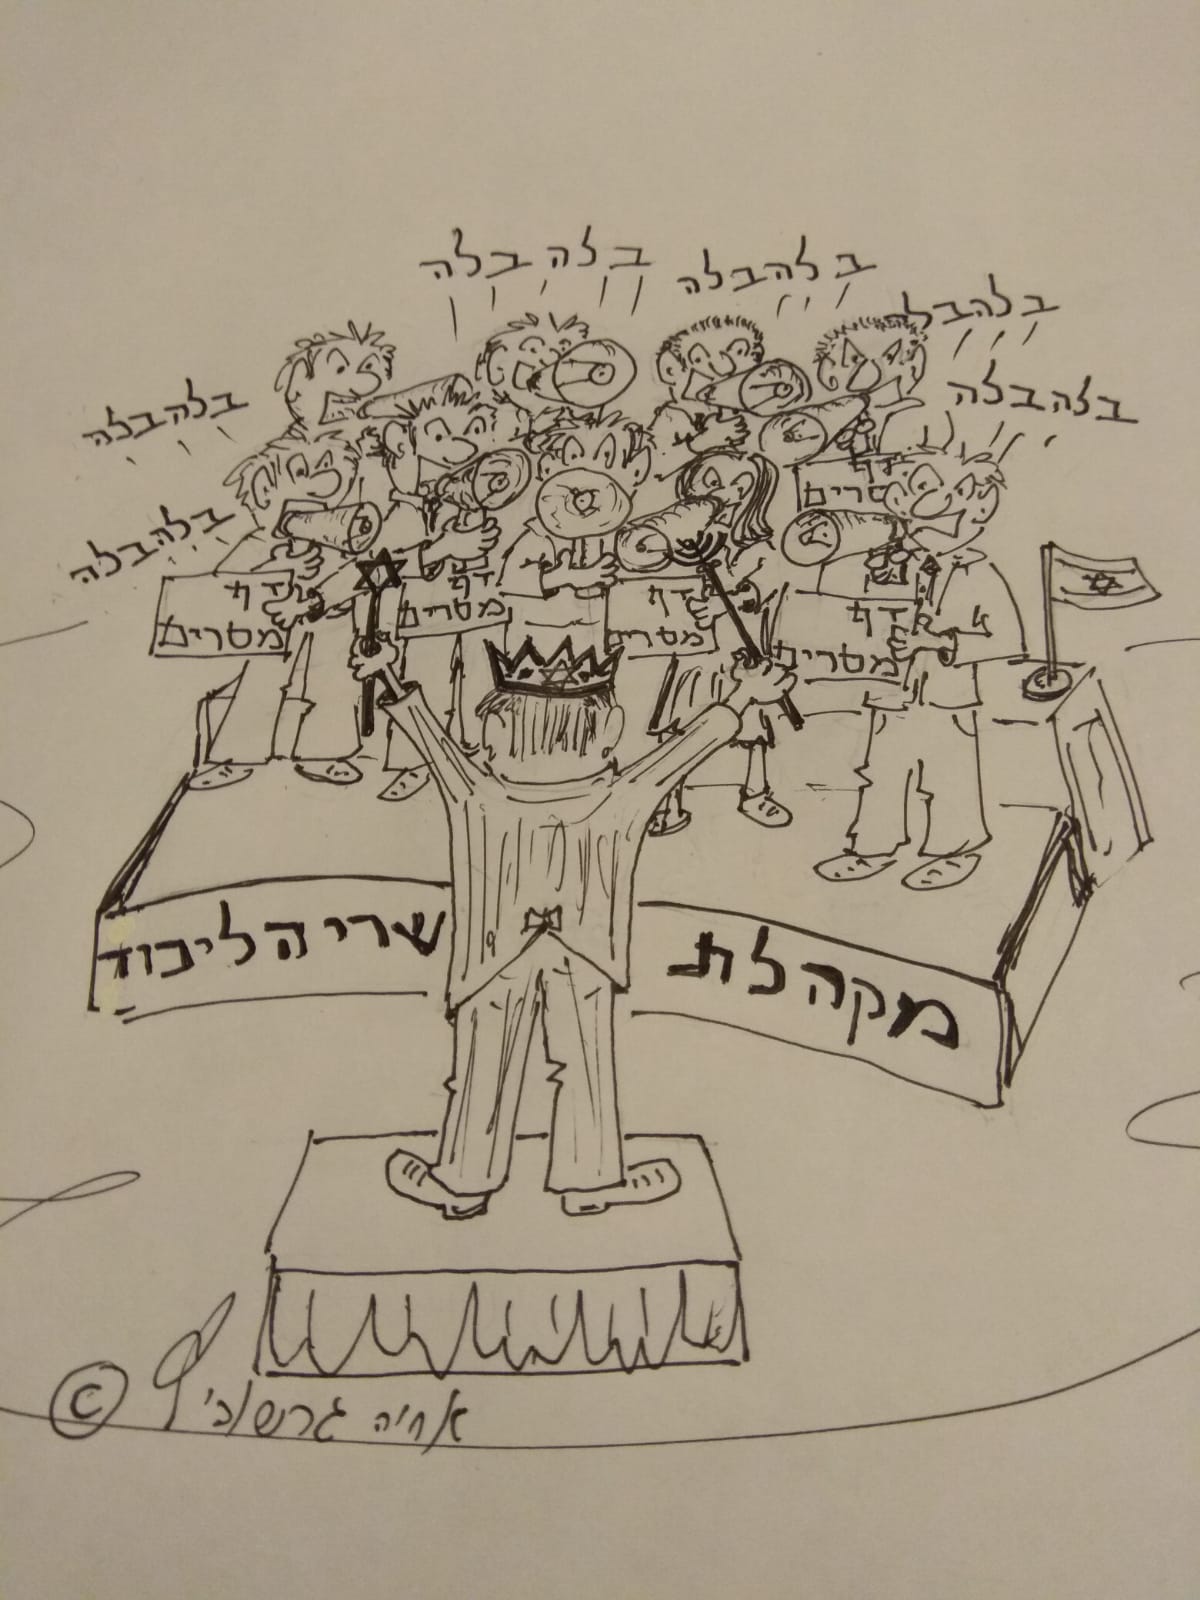 בלה בלה
בלה בלה
בלה בלה
בלה בלה
בלה בלה
בלה בלה
דף
מסרים
דף
מסרים
דף
מסרים
דף
מסרים
דף
סרים
מקהלת
שרי הליכוד
© אחיה גרשוני